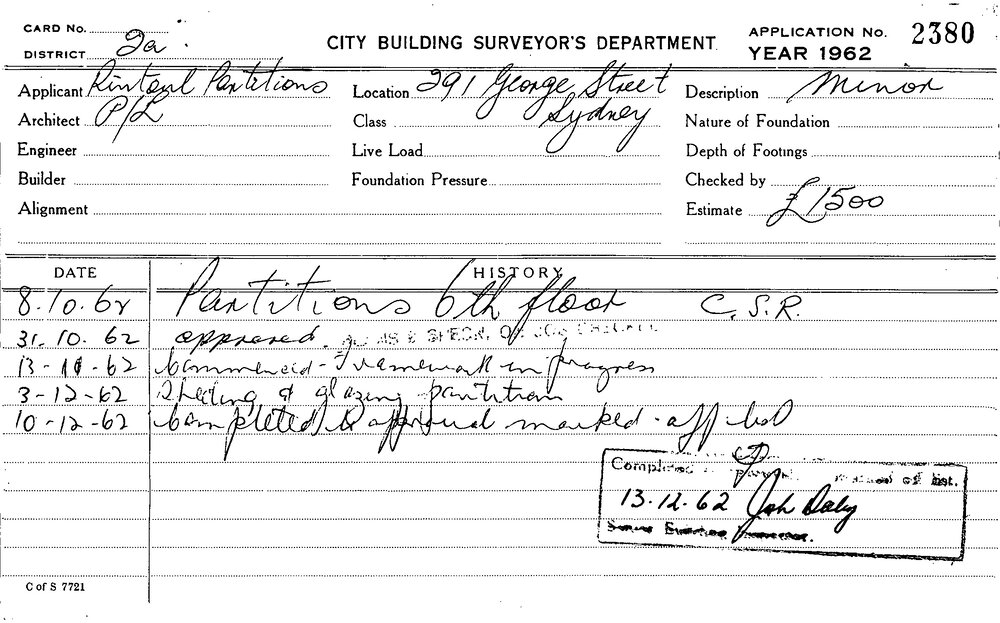 CARD No.
DISTRICT 2a.
CITY BUILDING SURVEYOR'S DEPARTMENT
APPLICATION No. 2380
YEAR 1962
Applicant Rintoul Partitions
Architect P/L
Engineer
Builder
Alignment
Location 291 George Street
Class Sydney
Live Load
Foundation Pressure
Description Minor
Nature of Foundation
Depth of Footings
Checked by
Estimate £1500
DATE HISTORY
8.10.62 Partitions 6th floor C.S.R.
31.10.62 approved.
13-11-62 Commenced - Framework in progress
3-12-62 Sheeting & glazing partition
10-12-62 Completed to approval marked - off list
Completed list.
13.12.62 Joh Daly
C of S 7721